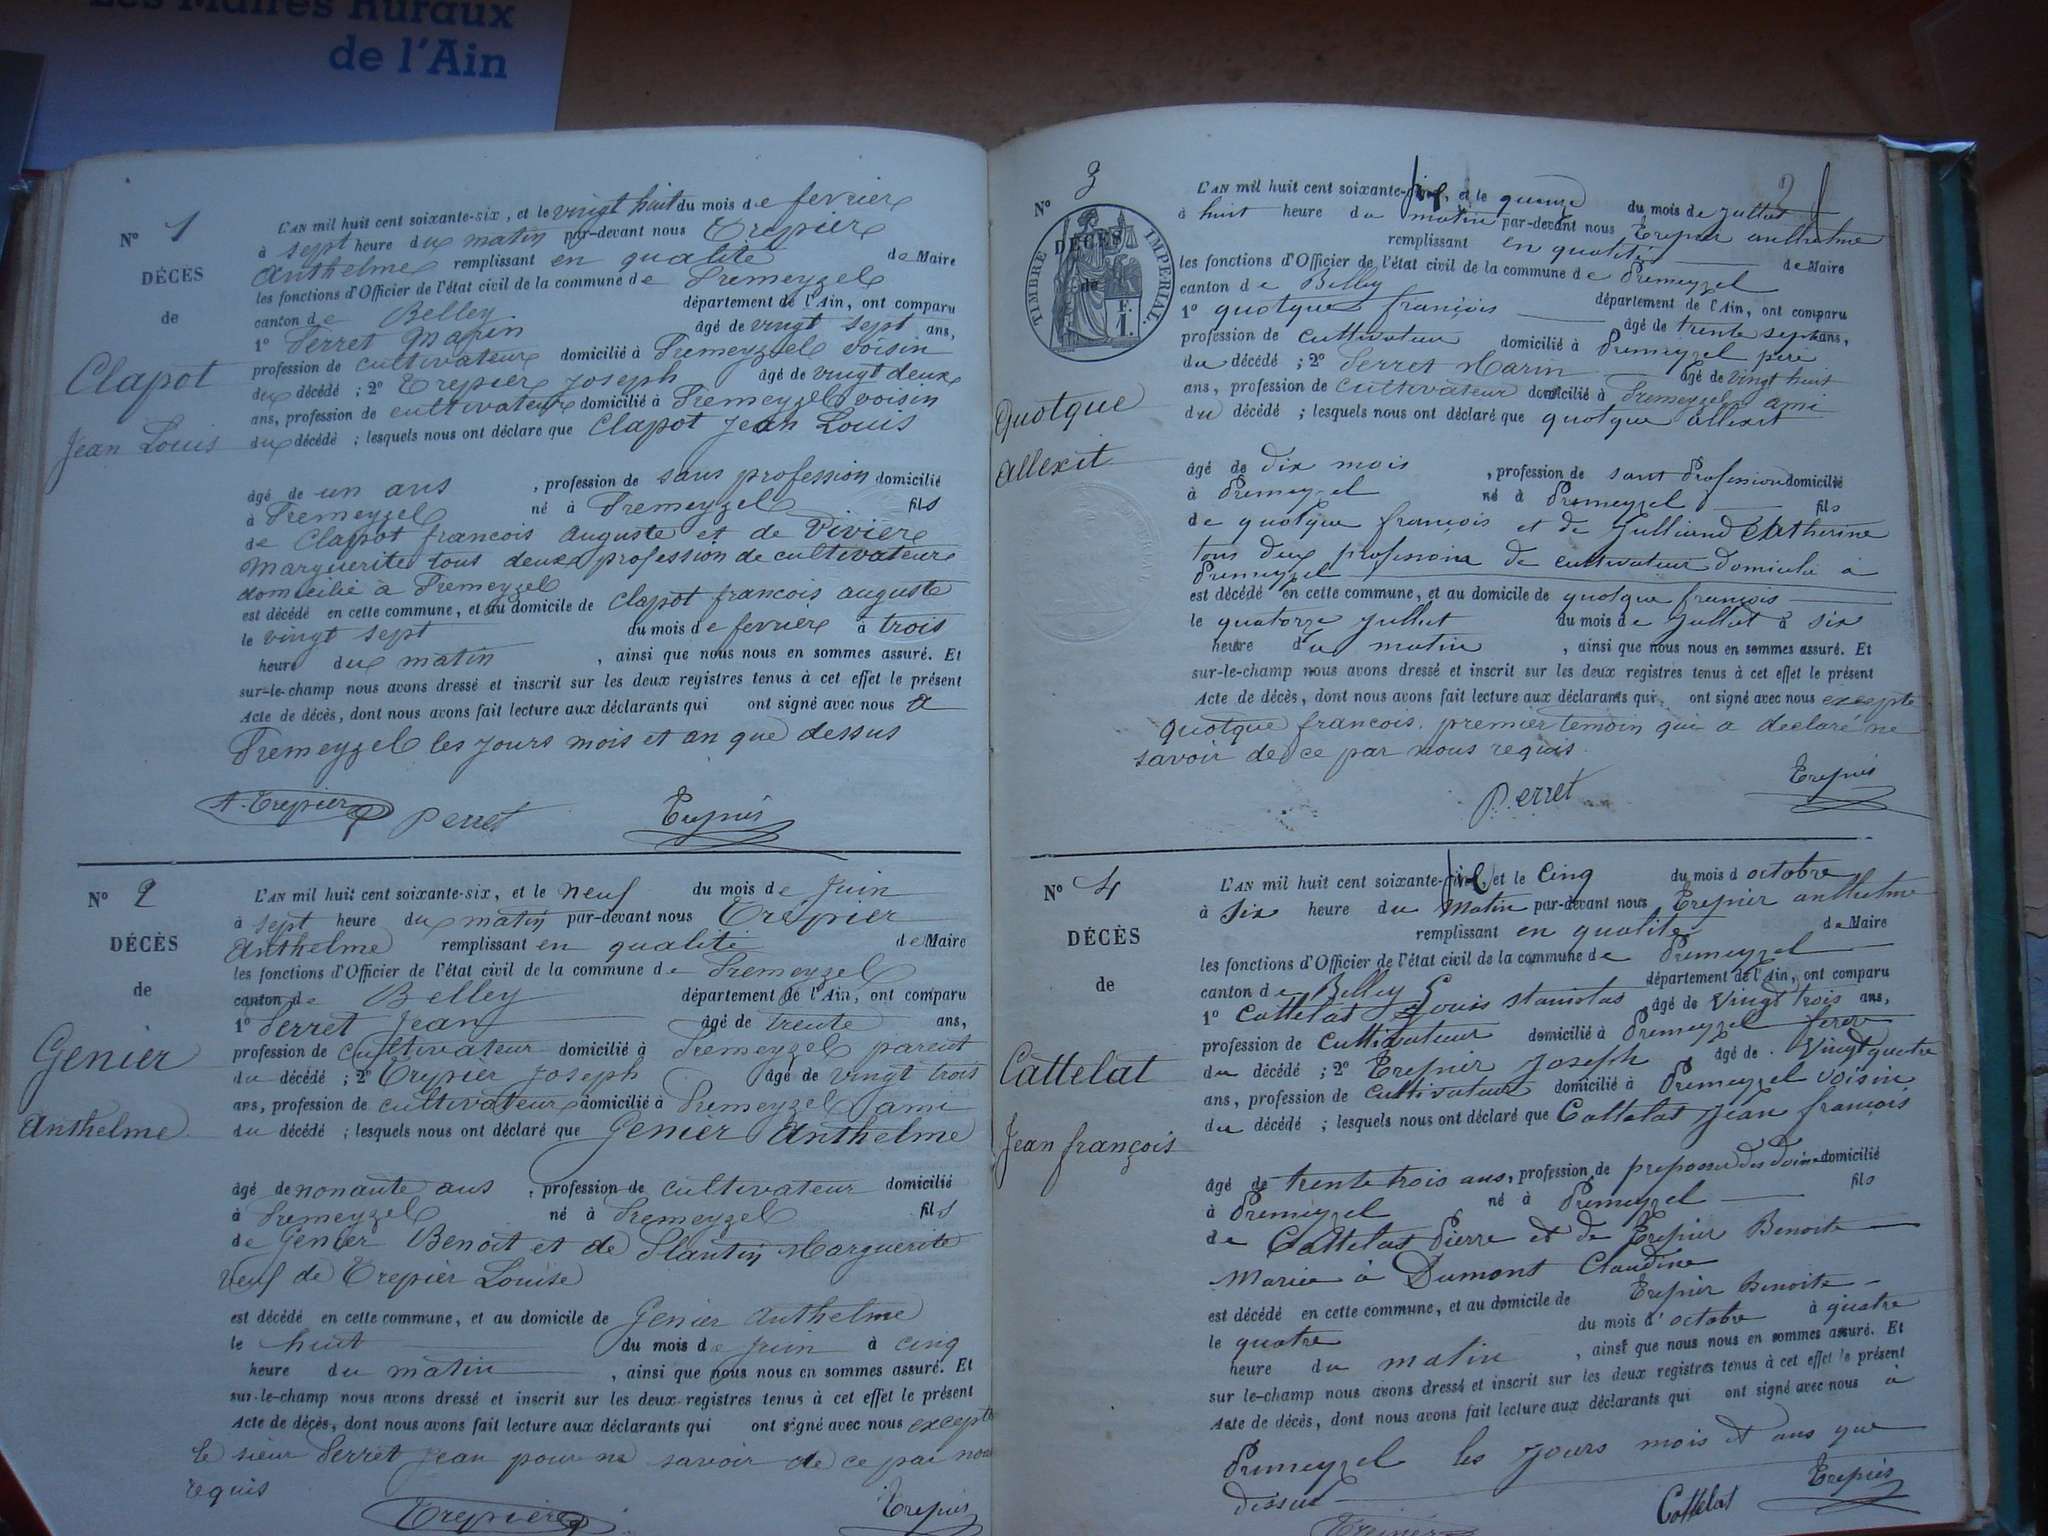 Les Maires Ruraux
de l'Ain
N° 1
DÉCÈS
de
Clapot
Jean Louis
L'AN mil huit cent soixante-six, et le vingt huit du mois de fevrier
à sept heure du matin par-devant nous Trepier
Anthelme remplissant en qualité de Maire
les fonctions d'Officier de l'état civil de la commune de Premeyzel
canton de Belley département de l'Ain, ont comparu
1° Perret Marin âgé de vingt sept ans,
profession de cultivateur domicilié à Premeyzel voisin
du décédé ; 2° Trepier Joseph âgé de vingt deux
ans, profession de cultivateur domicilié à Premeyzel voisin
du décédé ; lesquels nous ont déclaré que Clapot Jean Louis
âgé de un ans , profession de sans profession domicilié
à Premeyzel né à Premeyzel fils
de Clapot francois auguste et de Vivier
Marguerite tous deux profession de cultivateur
domicilié à Premeyzel
est décédé en cette commune, et au domicile de Clapot francois auguste
le vingt sept du mois de fevrier à trois
heure du matin , ainsi que nous nous en sommes assuré. Et
sur-le-champ nous avons dressé et inscrit sur les deux registres tenus à cet effet le présent
Acte de décès, dont nous avons fait lecture aux déclarants qui ont signé avec nous a
Premeyzel les jours mois et an que dessus
A. Trepier Perret Trepier
N° 2
DÉCÈS
de
Genier
Anthelme
L'AN mil huit cent soixante-six, et le neuf du mois de Juin
à sept heure du matin par-devant nous Trépier
Anthelme remplissant en qualité de Maire
les fonctions d'Officier de l'état civil de la commune de Premeyzel
canton de Belley département de l'Ain, ont comparu
1° Perret Jean âgé de trente ans,
profession de cultivateur domicilié à Premeyzel parent
du décédé ; 2° Trepier Joseph âgé de vingt trois
ans, profession de cultivateur domicilié à Premeyzel ami
du décédé ; lesquels nous ont déclaré que Genier Anthelme
âgé de nonante ans , profession de cultivateur domicilié
à Premeyzel né à Premeyzel fils
de Genier Benoit et de Plantin Marguerite
veuf de Trepier Louise
est décédé en cette commune, et au domicile de Genier Anthelme
le huit du mois de juin à cinq
heure du matin , ainsi que nous nous en sommes assuré. Et
sur-le-champ nous avons dressé et inscrit sur les deux registres tenus à cet effet le présent
Acte de décès, dont nous avons fait lecture aux déclarants qui ont signé avec nous excepte
le sieur Perret Jean pour ne savoir de ce par nous
requis
Trepier Trepier
N° 3
TIMBRE IMPÉRIAL
DÉCÈS
de
F.
1.
quotque
allexit
L'AN mil huit cent soixante-six, et le quinze du mois de juillet
à huit heure du matin par-devant nous Trepier anthelme
remplissant en qualité de Maire
les fonctions d'Officier de l'état civil de la commune de Premeyzel
canton de Belley département de l'Ain, ont comparu
1° quotque françois âgé de trente sept ans,
profession de cultivateur domicilié à Premeyzel pere
du décédé ; 2° Perret Marin âgé de vingt huit
ans, profession de cultivateur domicilié à Premeyzel ami
du décédé ; lesquels nous ont déclaré que quotque allexit
âgé de dix mois , profession de sant Profession domicilié
à Premeyzel né à Premeyzel fils
de quotque françois et de Julliand Catherine
tous deux profession de cultivateur domicilié à
Premeyzel
est décédé en cette commune, et au domicile de quotque françois
le quatorze juillet du mois de juillet à six
heure du matin , ainsi que nous nous en sommes assuré. Et
sur-le-champ nous avons dressé et inscrit sur les deux registres tenus à cet effet le présent
Acte de décès, dont nous avons fait lecture aux déclarants qui ont signé avec nous excepte
quotque francois premier temoin qui a declaré ne
savoir de ce par nous requis
Perret Trepier
N° 4
DÉCÈS
de
Cattelat
Jean françois
L'AN mil huit cent soixante-six, et le Cinq du mois d octobre
à six heure du matin par-devant nous Trepier anthelme
remplissant en qualité de Maire
les fonctions d'Officier de l'état civil de la commune de Premeyzel
canton de Belley département de l'Ain, ont comparu
1° Cattelat Louis Stanislas âgé de Vingt trois ans,
profession de Cultivateur domicilié à Premeyzel frere
du décédé ; 2° Trepier Joseph âgé de Vingt quatre
ans, profession de Cultivateur domicilié à Premeyzel voisin
du décédé ; lesquels nous ont déclaré que Cattelat Jean françois
âgé de trente trois ans, profession de preposeé des domicilié
à Premeyzel né à Premeyzel fils
de Cattelat Pierre et de Trepier Benoite
Mariée à Dumont Claudine
est décédé en cette commune, et au domicile de Trepier Benoite
le quatre du mois d'octobre à quatre
heure du matin , ainsi que nous nous en sommes assuré. Et
sur le-champ nous avons dressé et inscrit sur les deux registres tenus à cet effet le présent
Acte de décès, dont nous avons fait lecture aux déclarants qui ont signé avec nous à
Premeyzel les jours mois et ans que
dessus
Cattelat Trepier